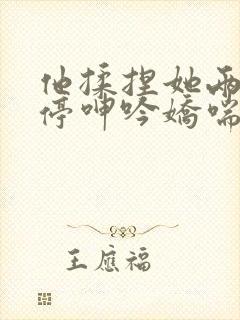 他揉捏她两
停呻吟娇喘
王应福